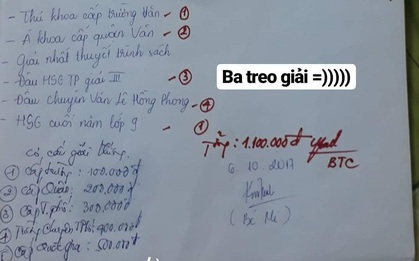 - Thủ khoa cấp trường Văn - ①
- Á khoa cấp quận Văn - ②
- Giải nhất thuyết trình sách
- Đậu HSG TP giải III - ③
- Đậu chuyên Văn Lê Hồng Phong - ④
- HSG cuối năm lớp 9 - ①
Ba treo giải =)))))
Tổng: 1.100.000đ
BTC
6.10.2017
(Bé Mi)
Cơ cấu giải thưởng.
① Cấp trường: 100.000đ
② Cấp Quận: 200.000đ
③ Cấp T.phố: 300.000đ
④ Trường Chuyên TPhố: 400.000đ
Cấp Quốc gia: 500.000đ